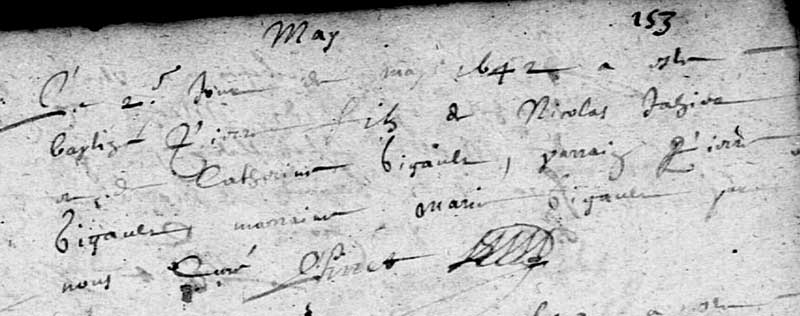 May 153
Ce 25 Jour de may 1642 a este
baptizé Pierre filz de Nicolas
et de Catherine Bigault, parrain Pierre
Bigault, marraine Marie Bigault par
nous Curé